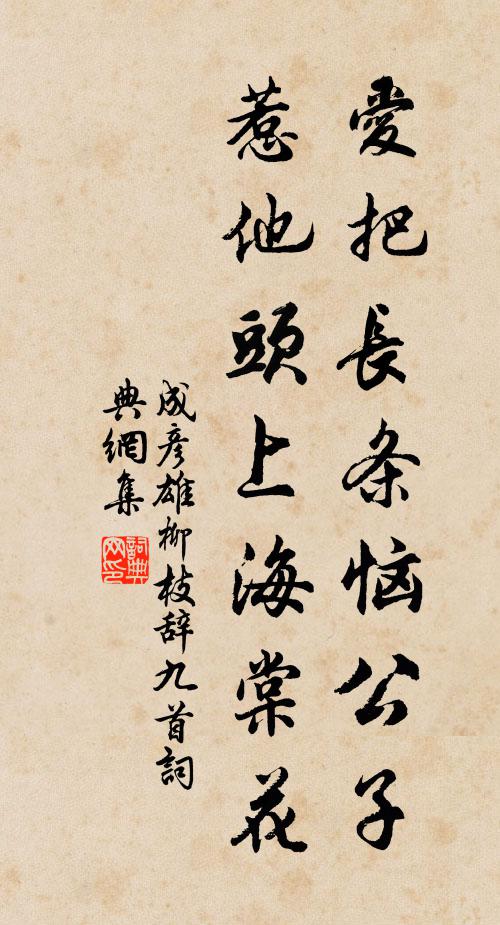 愛把長条恼公子
惹他頭上海棠花
成彦雄柳枝辞九首詞
典網集
詞典
网印